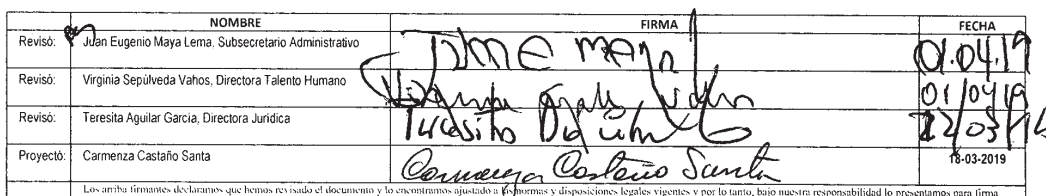 NOMBRE FIRMA FECHA
Revisó: Juan Eugenio Maya Lema. Subsecretario Administrativo 01.04.19
Revisó: Virginia Sepúlveda Vahos, Directora Talento Humano 01/04/19
Revisó: Teresita Aguilar Garcia, Directora Jurídica Teresita Aguilar 22/03/19
Proyectó: Carmenza Castaño Santa Carmenza Castaño Santa 18-03-2019
Los arriba firmantes declaramos que hemos revisado el documento y lo encontramos ajustado a las normas y disposiciones legales vigentes y por lo tanto, bajo nuestra responsabilidad lo presentamos para firma